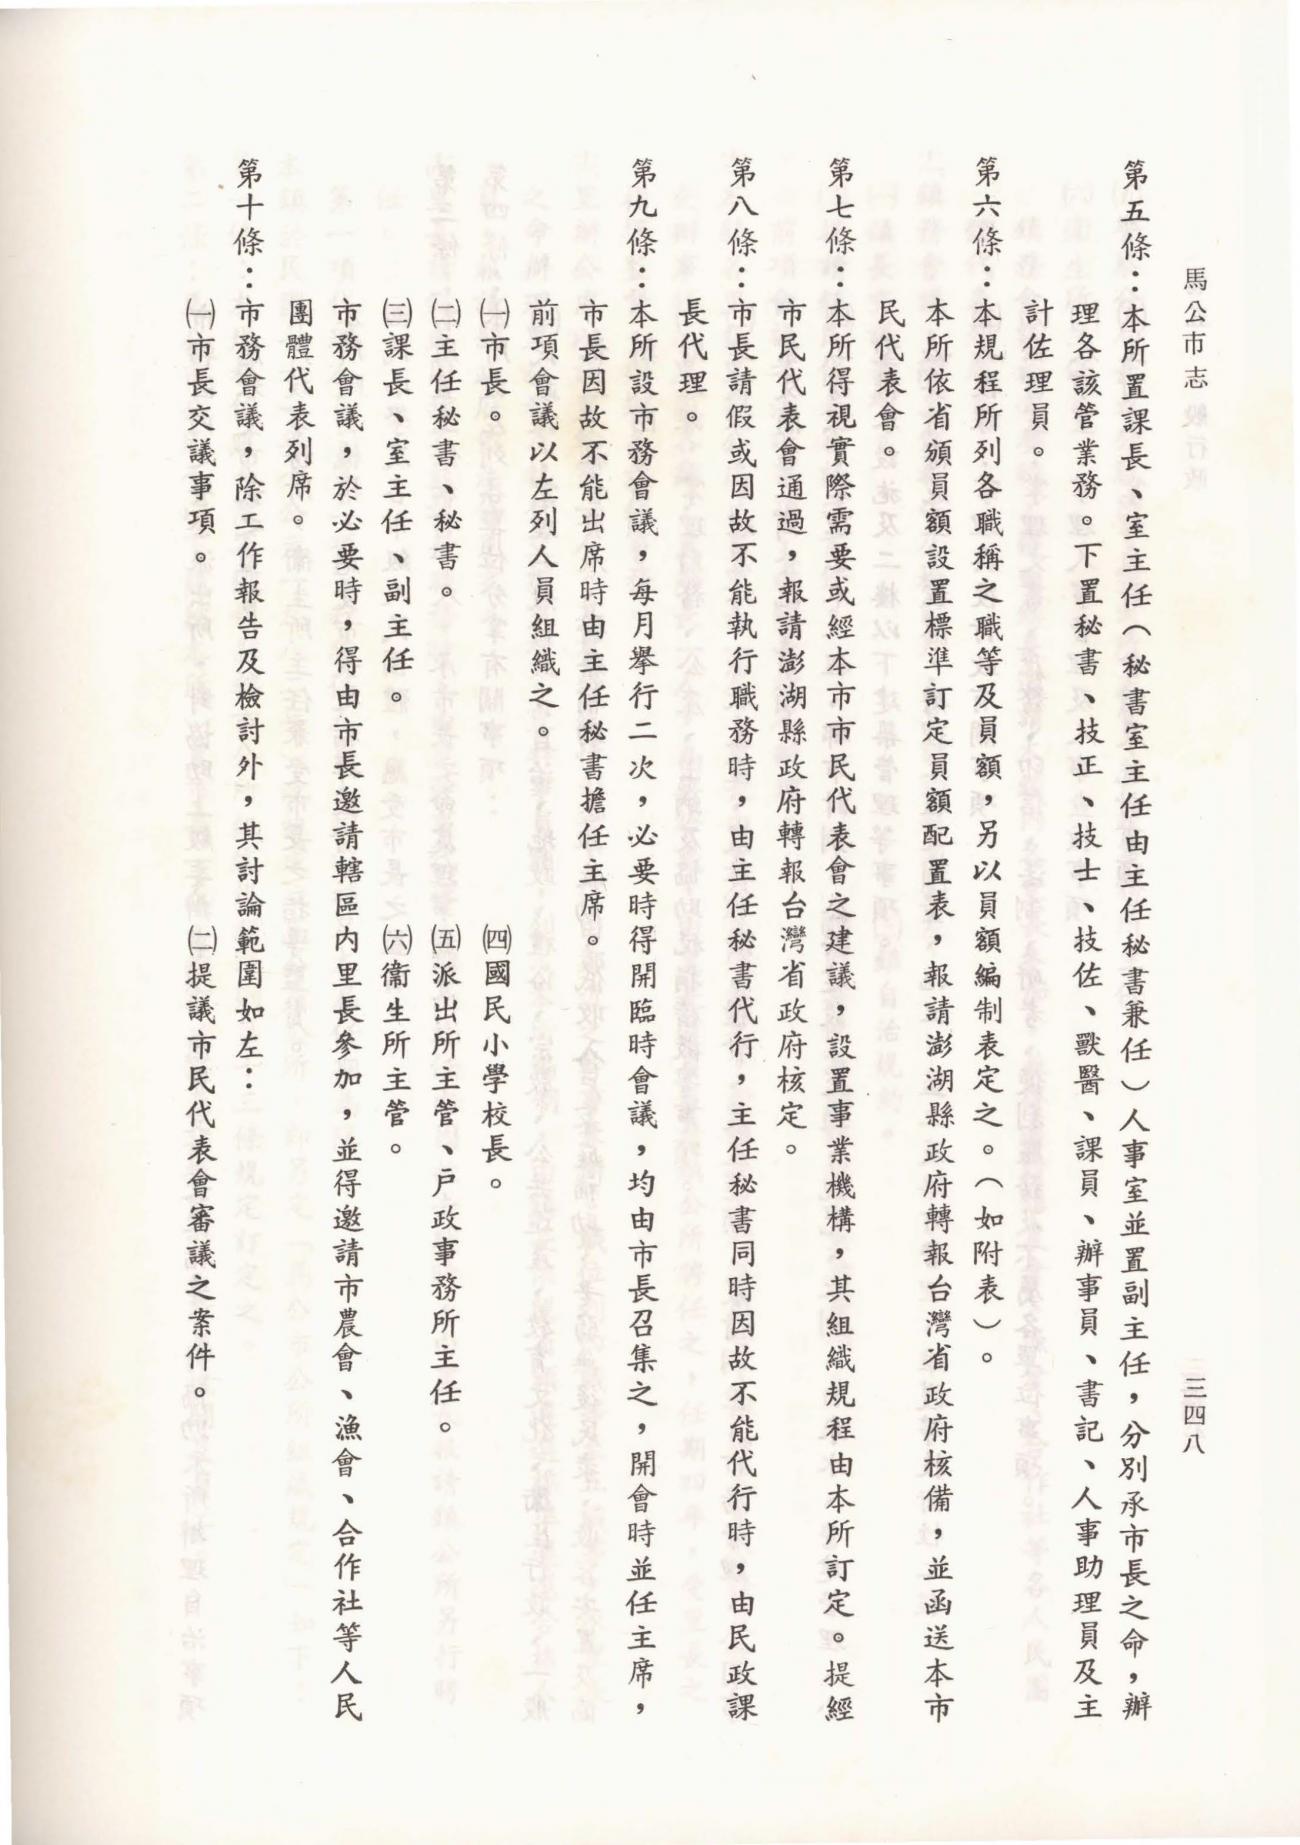 馬公市志 三四八
第五條：本所置課長、室主任（秘書室主任由主任秘書兼任）人事室並置副主任，分別承市長之命，辦
理各該管業務。下置秘書、技正、技士、技佐、獸醫、課員、辦事員、書記、人事助理員及主
計佐理員。
第六條：本規程所列各職稱之職等及員額，另以員額編制表定之。（如附表）。
本所依省頒員額設置標準訂定員額配置表，報請澎湖縣政府轉報台灣省政府核備，並函送本市
民代表會。
第七條：本所得視實際需要或經本市市民代表會之建議，設置事業機構，其組織規程由本所訂定。提經
市民代表會通過，報請澎湖縣政府轉報台灣省政府核定。
第八條：市長請假或因故不能執行職務時，由主任秘書代行，主任秘書同時因故不能代行時，由民政課
長代理。
第九條：本所設市務會議，每月舉行二次，必要時得開臨時會議，均由市長召集之，開會時並任主席，
市長因故不能出席時由主任秘書擔任主席。
前項會議以左列人員組織之。
㈠市長。 ㈣國民小學校長。
㈡主任秘書、秘書。 ㈤派出所主管、戶政事務所主任。
㈢課長、室主任、副主任。 ㈥衞生所主管。
市務會議，於必要時，得由市長邀請轄區內里長參加，並得邀請市農會、漁會、合作社等人民
團體代表列席。
第十條：市務會議，除工作報告及檢討外，其討論範圍如左：
㈠市長交議事項。 ㈡提議市民代表會審議之案件。